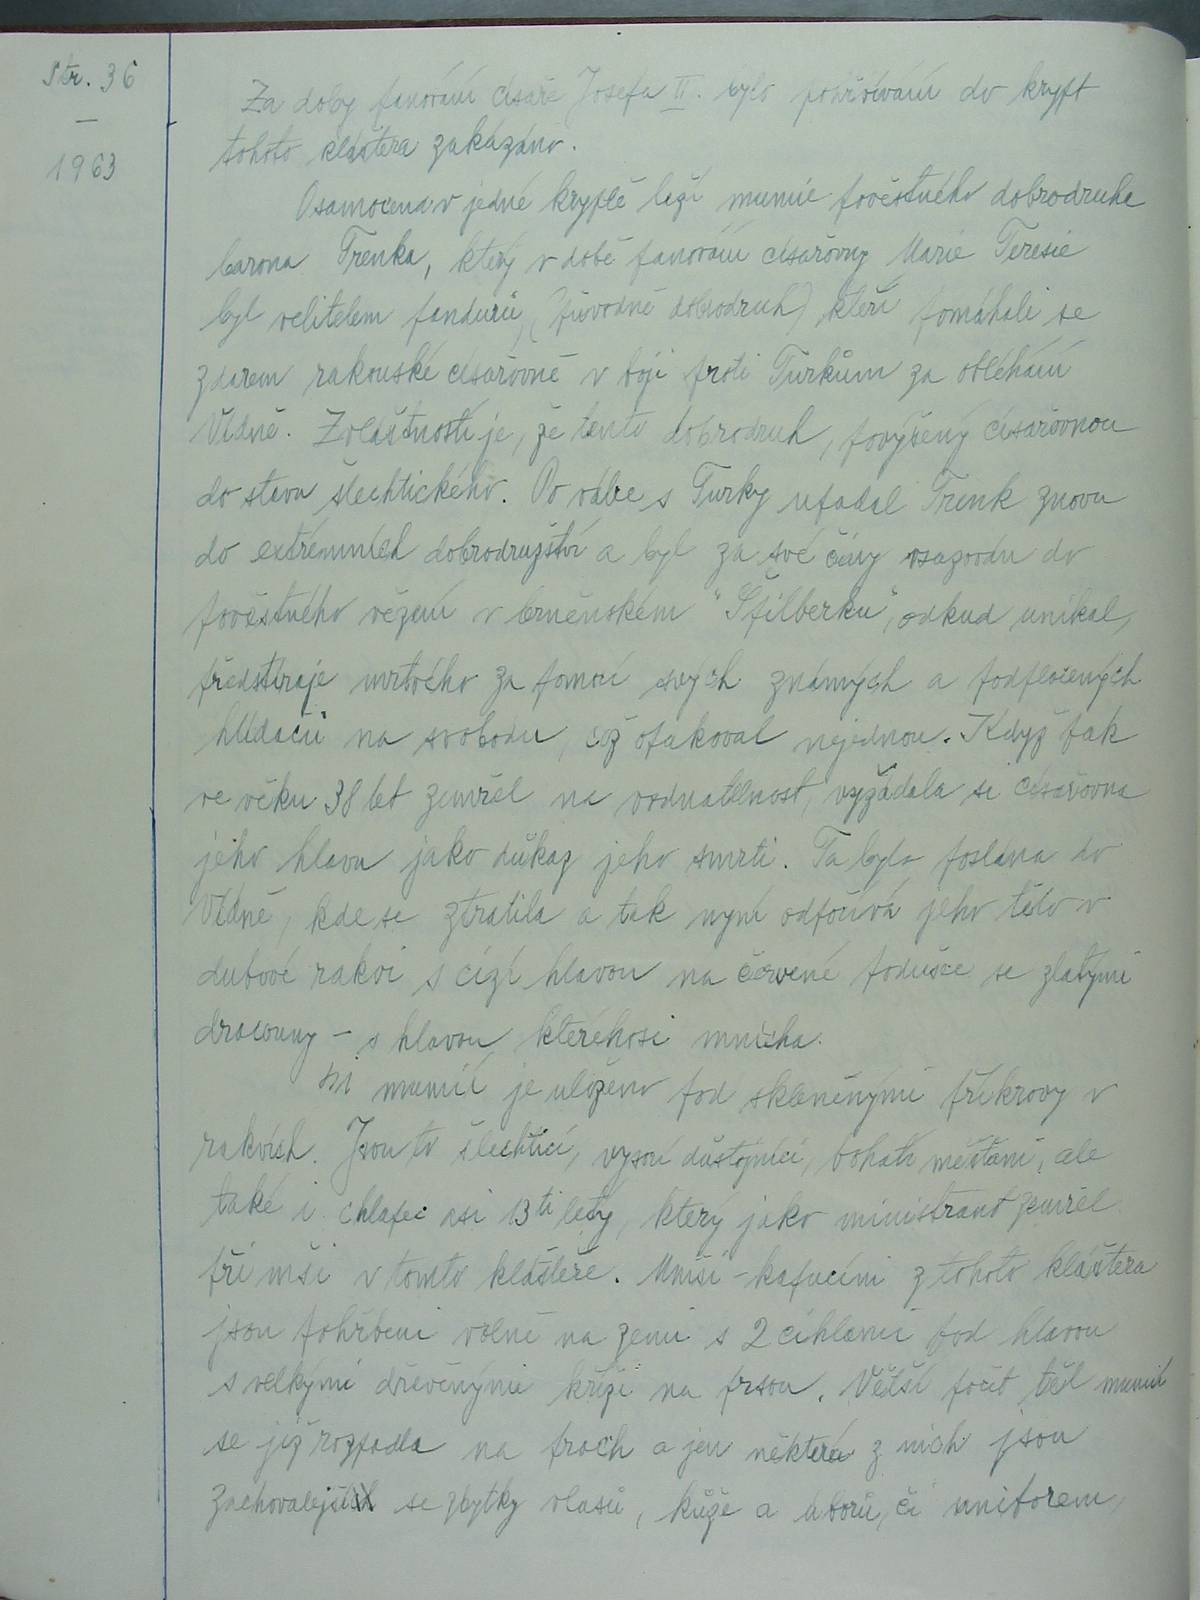 Str. 36
—
1963
Za doby panování císaře Josefa II. bylo pohřbívání do krypt
tohoto kláštera zakázáno.
Osamocena v jedné kryptě leží mumie pověstného dobrodruha
barona Trenka, který v době panování císařovny Marie Teresie
byl velitelem pandurů, (původně dobrodruh) kteří pomáhali se
zdarem rakouské císařovně v boji proti Turkům za obléhání
Vídně. Zvláštností je, že tento dobrodruh, povýšený císařovnou
do stavu šlechtického. Po válce s Turky upadal Trenk znovu
do extrémních dobrodružství a byl za své činy vsazován do
pověstného vězení v brněnském "Špilberku", odkud unikal,
předstíraje mrtvého za pomoci svých známých a podplacených
hlídačů na svobodu, což opakoval nejednou. Když pak
ve věku 38 let zemřel na vodnatelnost, vyžádala si císařovna
jeho hlavu jako důkaz jeho smrti. Ta byla poslána do
Vídně, kde se ztratila a tak nyní odpočívá jeho tělo v
dubové rakvi s cizí hlavou na červené podušce se zlatými
dracouny – s hlavou kteréhosi mnicha.
mumií je uloženo pod skleněnými příkrovy v
rakvích. Jsou to šlechtici, vysocí důstojníci, bohatí měšťani, ale
také i chlapec asi 13ti letý, který jako ministrant zemřel
při mši v tomto klášteře. Mniši-kapucíni z tohoto kláštera
jsou pohřbeni volně na zemi s 2 cihlami pod hlavou
s velkými dřevěnými kříži na prsou. Větší počet těl mumií
se již rozpadla na proch a jen některá z nich jsou
zachovalejší se zbytky vlasů, kůže a uborů, či uniforem,